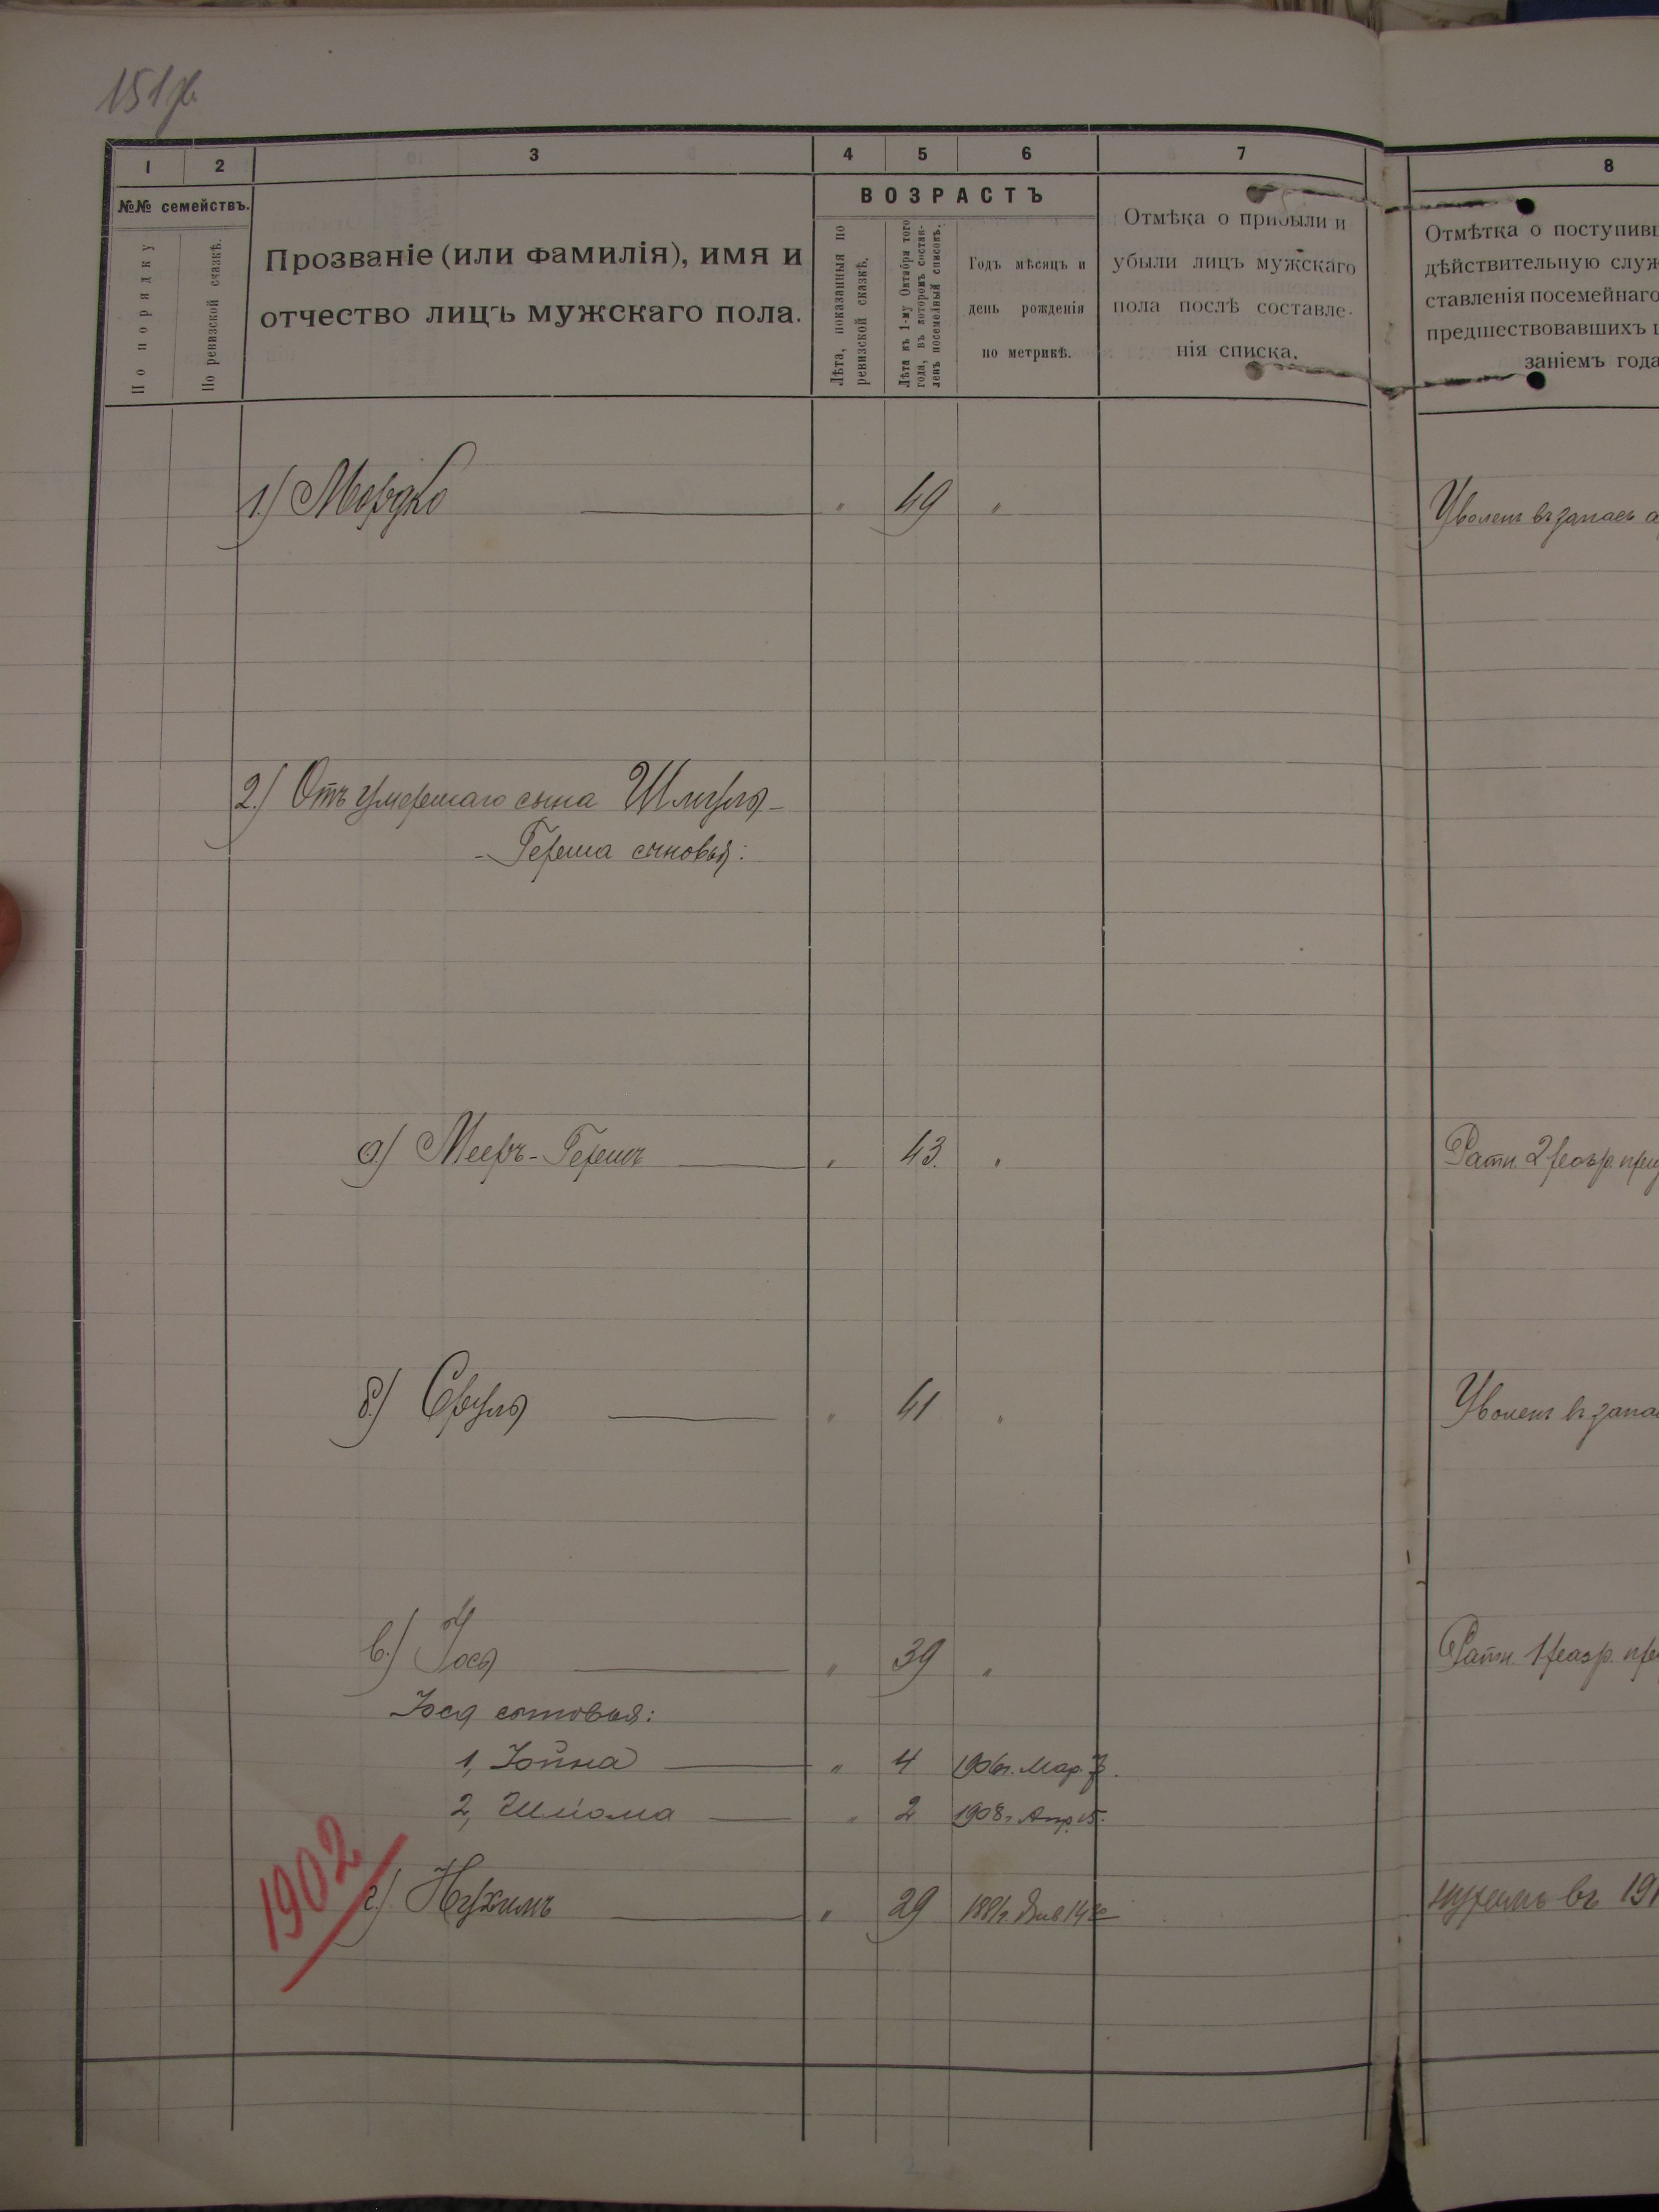 151об
1 2 3 4 5 6 7 8
№№ семействъ.
По порядку
По ревизской сказкѣ.
Прозваніе (или фамилія), имя и
отчество лицъ мужскаго пола.
ВОЗРАСТЪ
Лѣта, показанныя по
ревизской сказкѣ.
Лѣта къ 1-му Октября того
года, въ которомъ состав-
ленъ посемейный списокъ.
Годъ мѣсяцъ и
день рожденія
по метрикѣ.
Отмѣка о прибыли и
убыли лицъ мужскаго
пола послѣ составле-
нія списка.
Отмѣтка о поступивш
дѣйствительную служ
ставленія посемейнаго
предшествовавшихъ
заніемъ года
1.) Мордко — " 49 " Уволенъ въ запасъ а
2.) Отъ умершаго сына Шмуля-
-Герша сыновья:
а.) Мееръ-Гершъ — " 43. " Ратн. 2 разр. пре
б.) Сруль — " 41 " Уволенъ въ запа
в.) Іось — " 39 " Ратн. 1 разр. пре
Іося сыновья:
1, Іойна — " 4 1906г. Мар. 7.
2, Шліома — " 2 1908г. Апр. 15.
1902
г.) Нухимъ — " 29 1881г. Янв 14го
въ 191